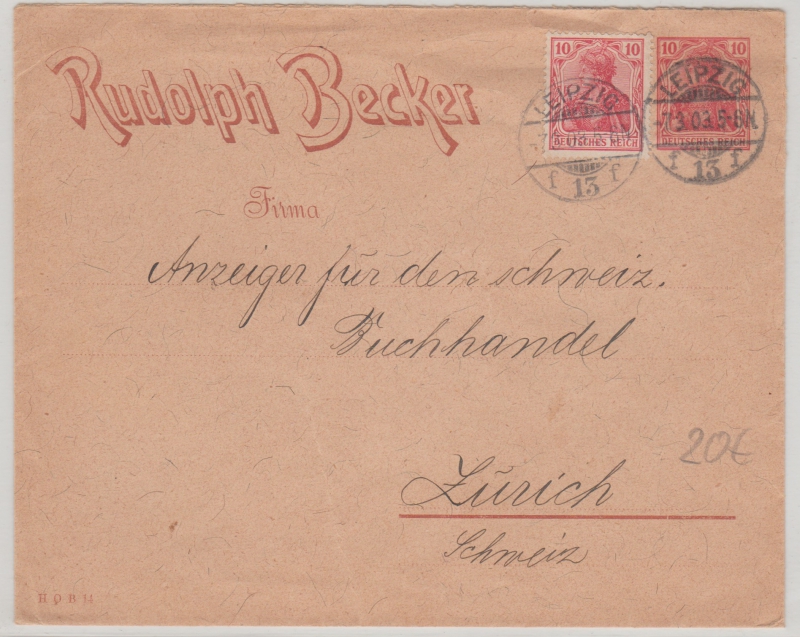 Rudolph Becker
10 10
DEUTSCHES REICH
10 10
DEUTSCHES REICH
LEIPZIG
f 13 f
LEIPZIG
7.3 03.5-6N.
f 13 f
Firma
Anzeiger für den schweiz.
Buchhandel
20€
Zürich
Schweiz
H O B 14